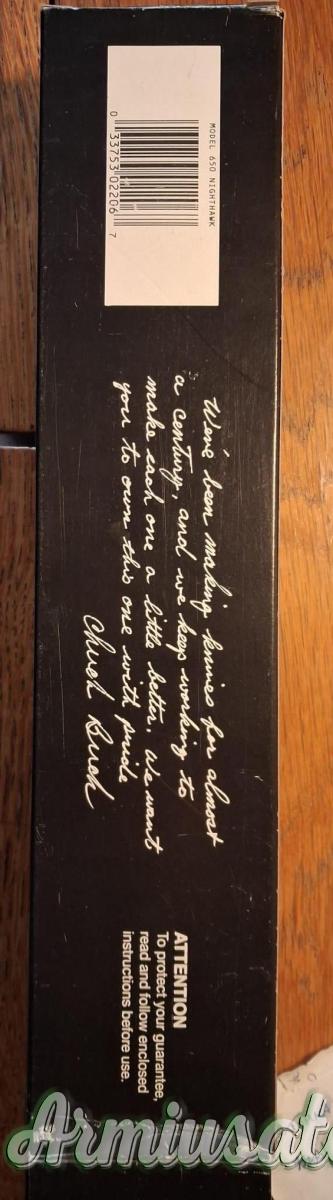 MODEL 650 NIGHTHAWK
0 33753 02206 7
We've been making knives for almost
a century, and we keep working to
make each one a little better. We want
you to own this one with pride
Chuck Buck
ATTENTION
To protect your guarantee,
read and follow enclosed
instructions before use.
Armiusat